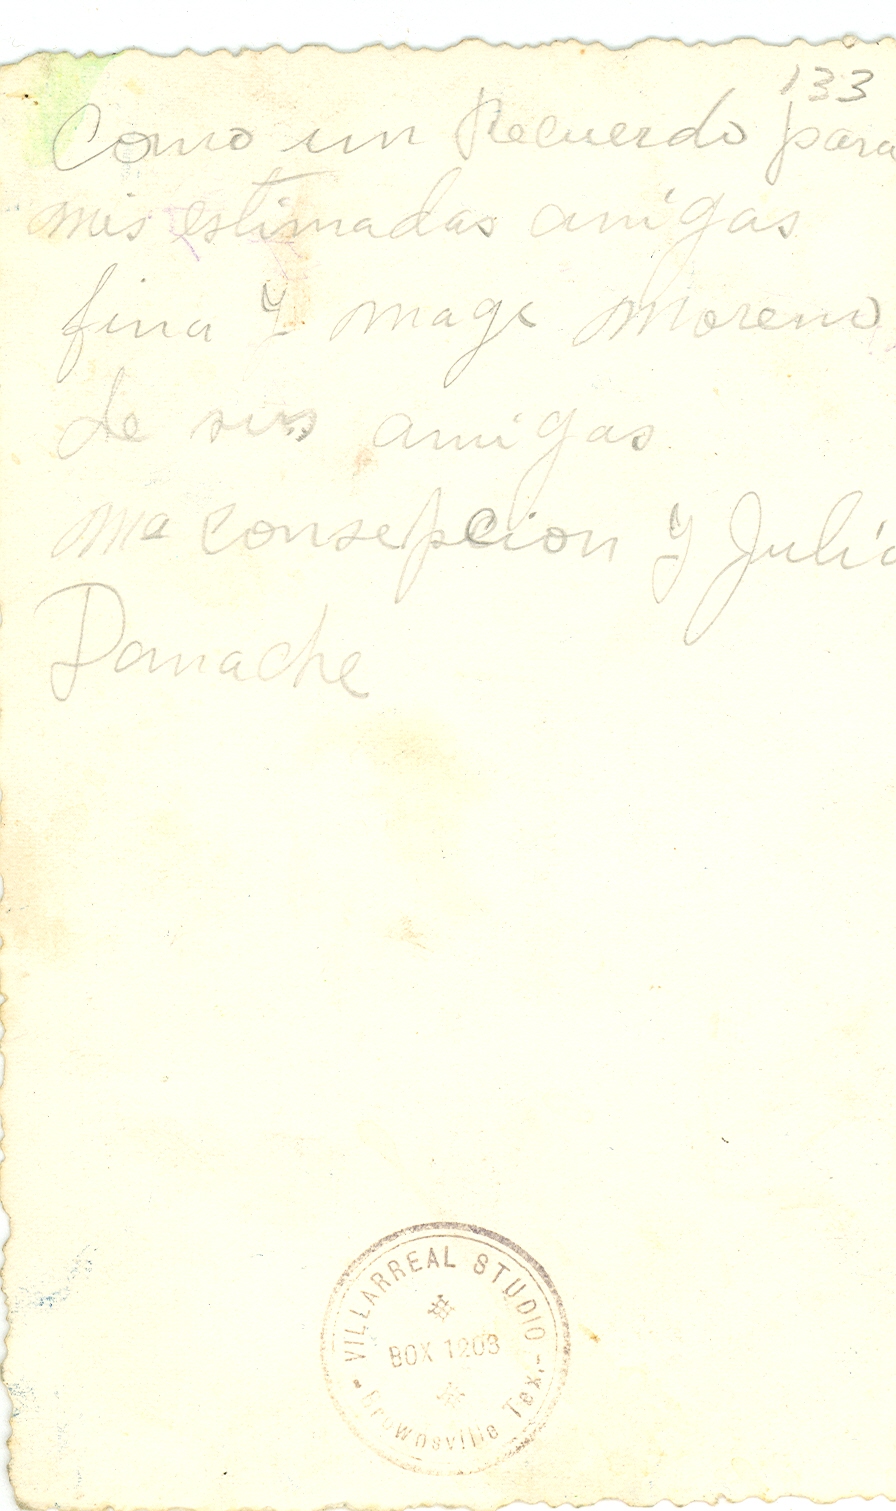 133
Como un Recuerdo para
mis estimadas amigas
fina Y mage Moreno,
de sus amigas
Ma Consepcion Y Julia
Damache
VILLARREAL STUDIO
BOX 1203
- Brownsville Tex. -